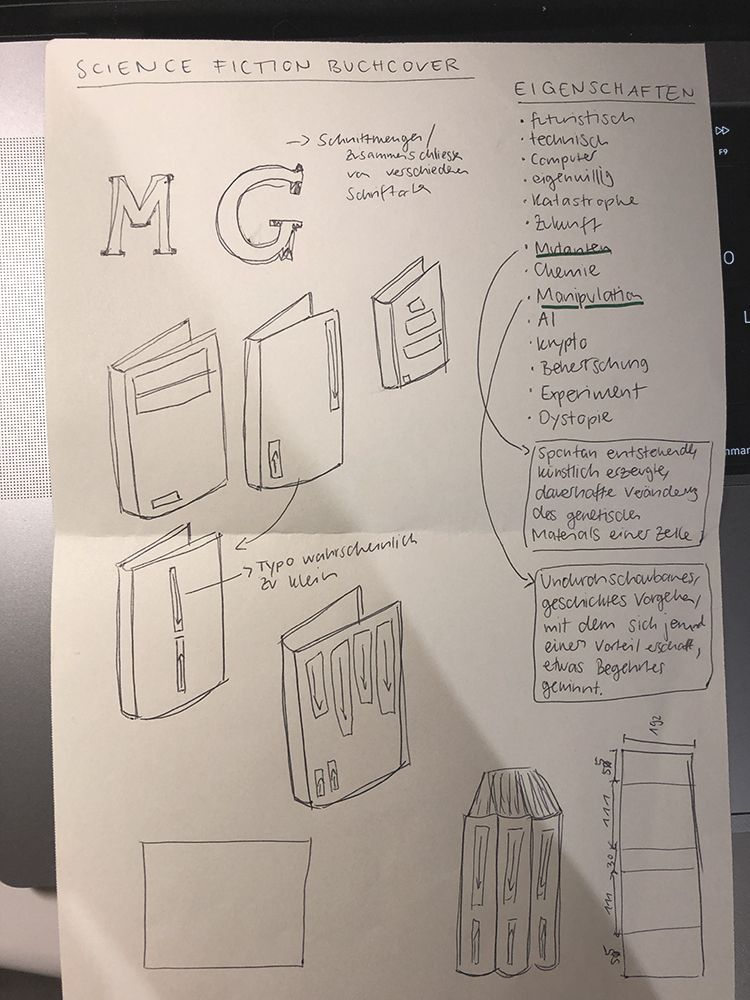 SCIENCE FICTION BUCHCOVER
M G
→ Schnittmengen/
Zusammenschliesse
von verschiedenen
Schriftarten
EIGENSCHAFTEN
· futuristisch
· technisch
· Computer
· eigenwillig
· Katastrophe
· Zukunft
· Mutanten
· Chemie
· Manipulation
· AI
· Krypto
· Beherrschung
· Experiment
· Dystopie
Spontan entstehende,
künstlich erzeugte,
dauerhafte Veränderung
des genetischen
Materials einer Zelle
Undurchschaubares,
geschicktes Vorgehen,
mit dem sich jemand
einen Vorteil erschafft,
etwas Begehrtes
gewinnt.
→ Typo wahrscheinlich
zu klein
192
111
30
111
F9